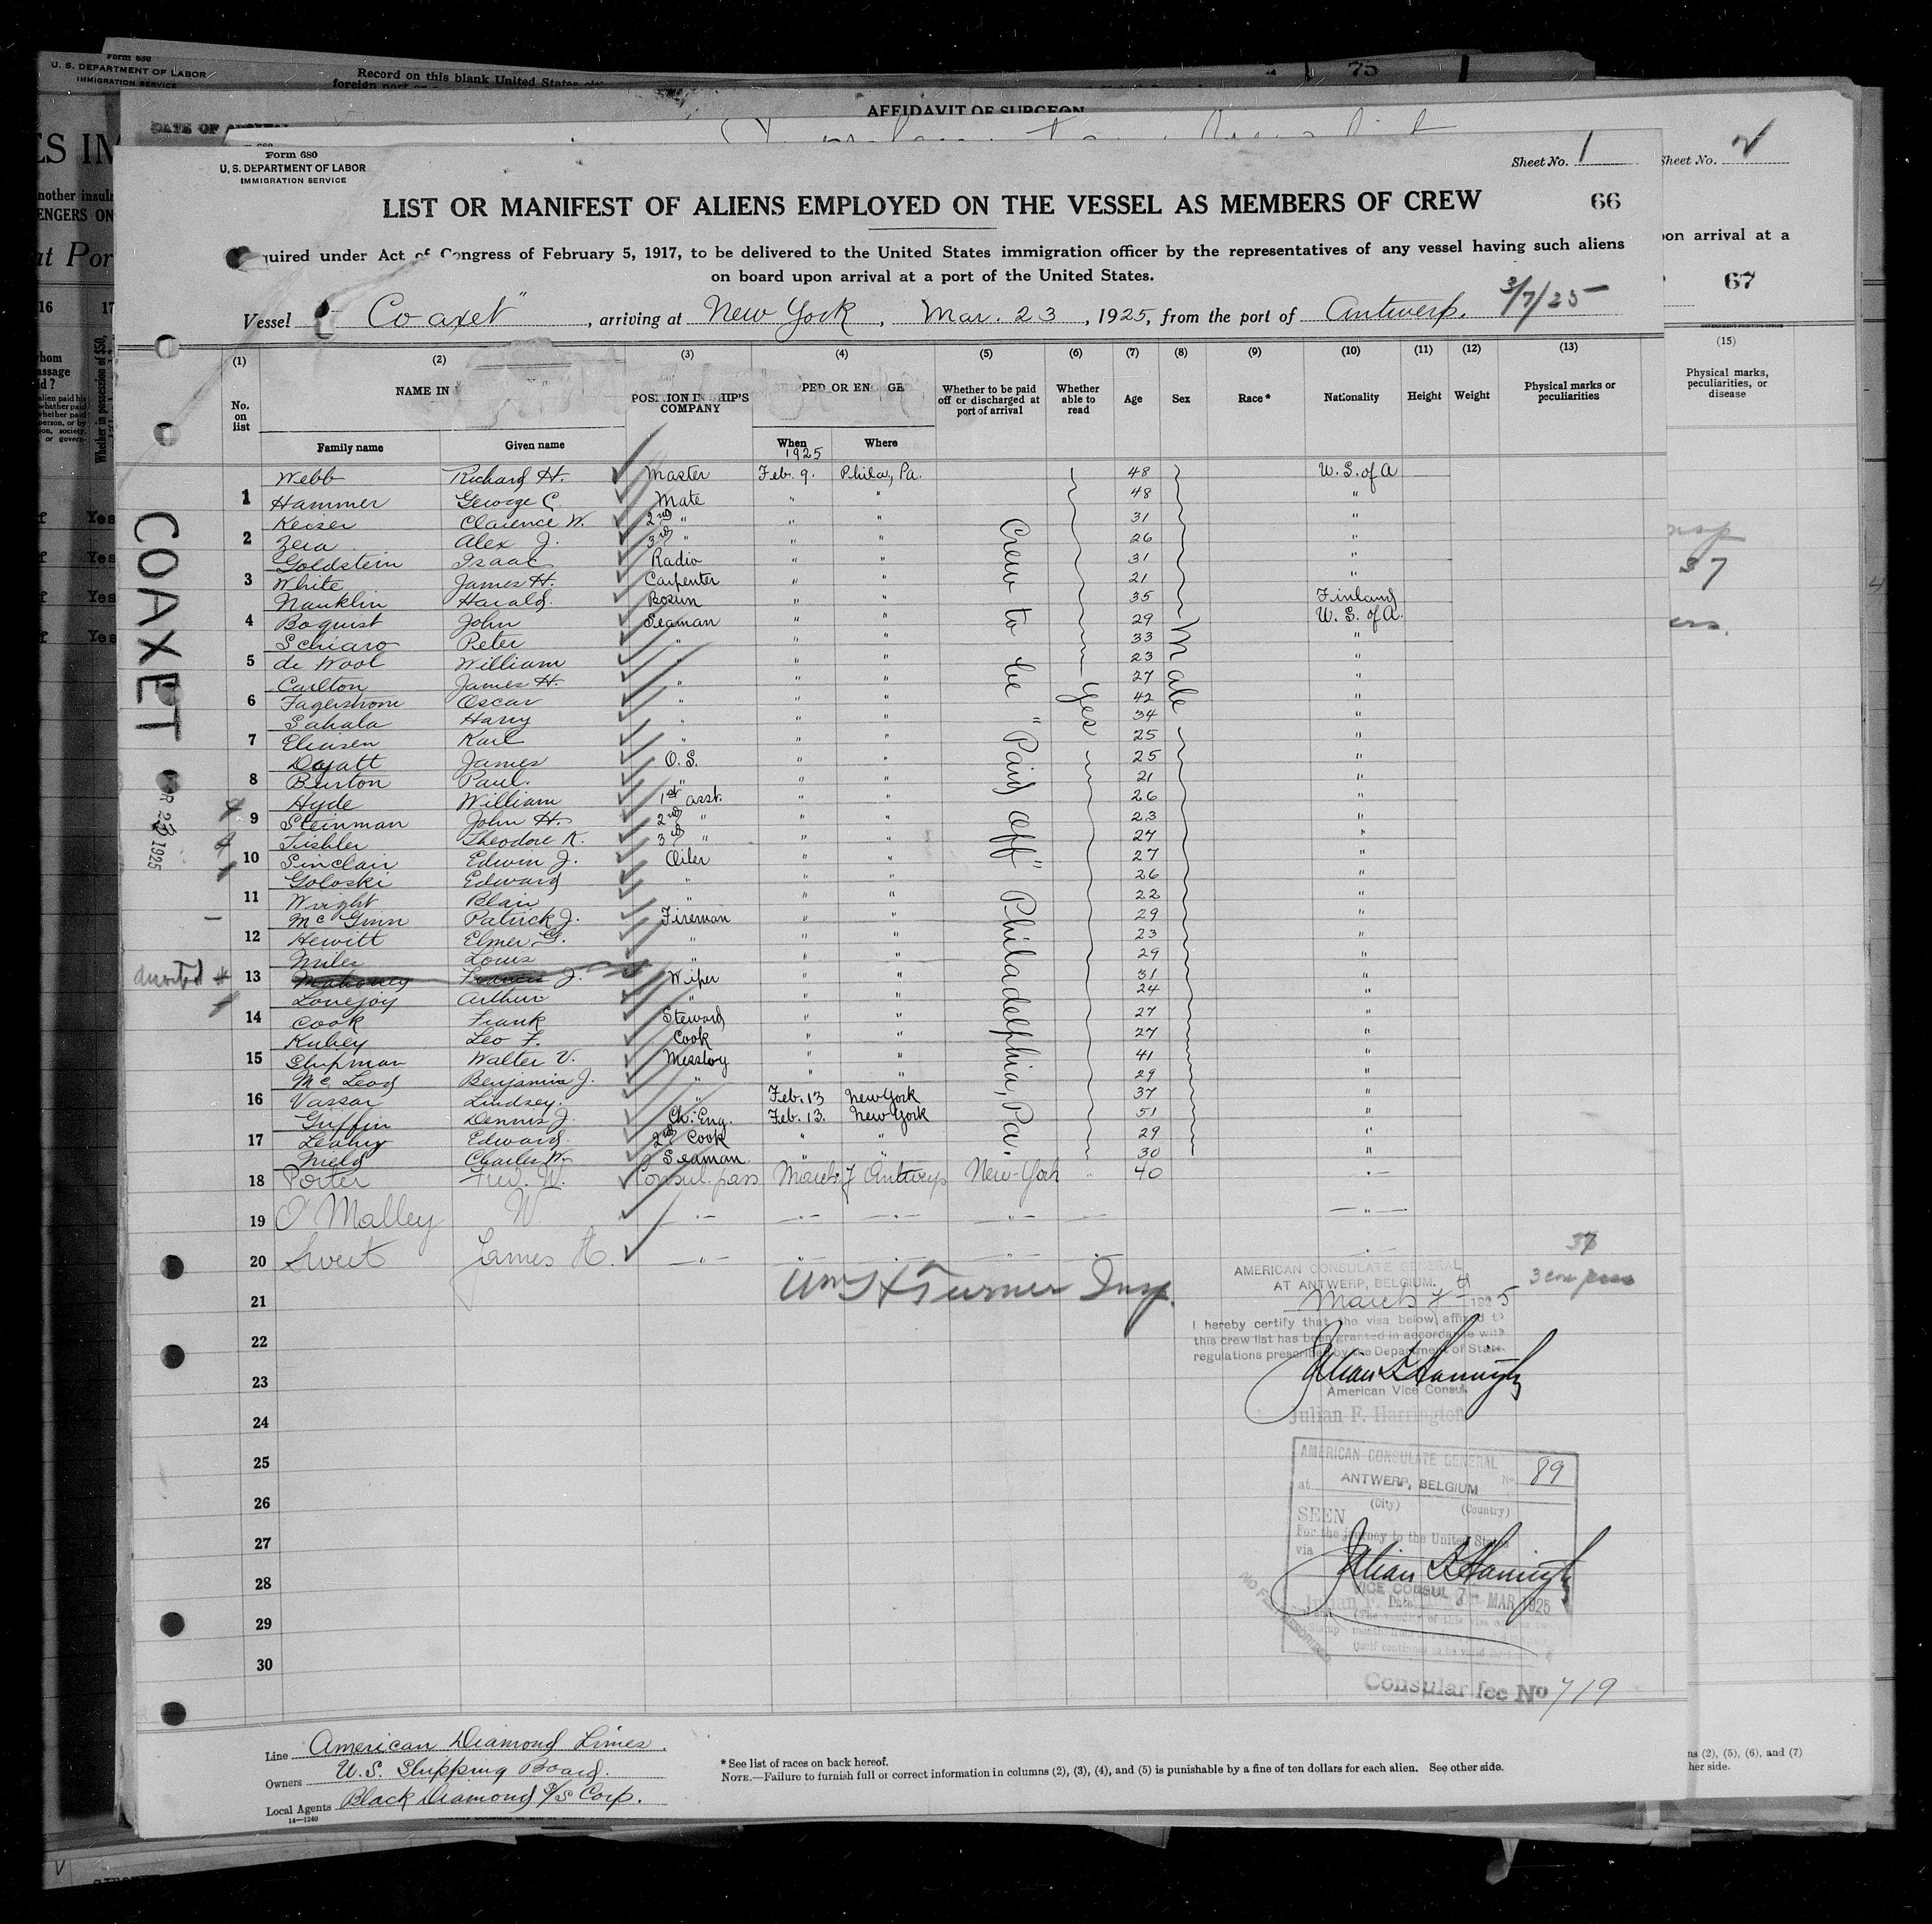 Form 630
U. S. DEPARTMENT OF LABOR
IMMIGRATION SERVICE
Record on this blank United States
75
AFFIDAVIT OF SURGEON
Form 680
U. S. DEPARTMENT OF LABOR
IMMIGRATION SERVICE
Sheet No. 1
Sheet No. 2
LIST OR MANIFEST OF ALIENS EMPLOYED ON THE VESSEL AS MEMBERS OF CREW
66
quired under Act of Congress of February 5, 1917, to be delivered to the United States immigration officer by the representatives of any vessel having such aliens
on board upon arrival at a port of the United States.
on arrival at a
67
Vessel "Coaxet", arriving at New York, Mar. 23, 1925, from the port of Antwerp. 3/7/25
(1) (2) (3) (4) (5) (6) (7) (8) (9) (10) (11) (12) (13)
No. on list
NAME IN
Family name Given name
POSITION IN SHIP'S COMPANY
PED OR ENGAGE
When 1925 Where
Whether to be paid off or discharged at port of arrival
Whether able to read
Age
Sex
Race*
Nationality
Height
Weight
Physical marks or peculiarities
(15)
Physical marks, peculiarities, or disease
COAXET
R 23 1925
Webb Richard H. Master Feb. 9. Phila, Pa. 48 U. S. of A
1 Hammer George C. Mate " " 48 "
Keiser Clarence W. 2nd " " " 31 "
2 Zera Alex J. 3rd " " " 26 "
Goldstein Isaac Radio " " 31 "
3 White James H. Carpenter " " 21 "
Nanklin Harald. Bosun " " 35 Finland
4 Boquist John Seaman " " 29 U. S. of A.
Schiaro Peter " " " 33 "
5 de Wool William " " " 23 "
Carlton James H. " " " 27 "
6 Fagerstrom Oscar " " " 42 "
Sahala Harry " " " 34 "
7 Eliasen Karl " " " 25 "
Doyatt James O. S. " " 25 "
8 Burton Paul. " " " 21 "
Hyde William 1st asst. " " 26 "
9 Steinman John H. 2nd " " " 23 "
Tishler Theodore K. 3rd " " " 24 "
10 Sinclair Edwin J. Oiler " " 27 "
Goloski Edward " " " 26 "
11 Wright Blair " " " 22 "
Mc Ginn Patrick J. Fireman " " 29 "
12 Hewitt Elmer G. " " " 23 "
Miles Louis " " " 29 "
deserted 13 Mahoney Francis J. Wiper " " 31 "
Lovejoy Arthur " " " 24 "
14 Cook Frank Steward " " 27 "
Kubey Leo F. Cook " " 27 "
15 Shipman Walter V. Messboy " " 41 "
Mc Leod Benjamin J. " " " 29 "
16 Vassar Lindsey. " Feb. 13 New York 37 "
Griffin Dennis J. Ch. Eng. Feb. 13. New York 51 "
17 Leahy Edward 2nd Cook " " 29 "
Nield Charles W. Seaman. " " 30 "
18 Porter Fred. W. Consul. pass March 7 Antwerp New-York " 40 "
19 O'Malley W. " " " " " "
20 Sweet James H. " " " " " "
Crew to be "Paid off" Philadelphia, Pa.
Yes
Male
37
37
3 con pass
21
22
23
24
25
26
27
28
29
30
Wm H Turner Insp.
AMERICAN CONSULATE GENERAL
AT ANTWERP, BELGIUM.
March 7th 1925
I hereby certify that the visa below, affixed to
this crew list has been granted in accordance with
regulations prescribed by the Department of State.
American Vice Consul.
Julian F. Harrington
AMERICAN CONSULATE GENERAL
at ANTWERP, BELGIUM No. 89
(City) (Country)
SEEN
For the journey to the United States
via
VICE CONSUL
Date 7 MAR 1925
Consular fee No 719
Line American Diamond Lines.
Owners U. S. Shipping Board.
Local Agents Black Diamond S/S Corp.
14—1240
*See list of races on back hereof.
NOTE.—Failure to furnish full or correct information in columns (2), (3), (4), and (5) is punishable by a fine of ten dollars for each alien. See other side.
ns (2), (5), (6), and (7)
her side.